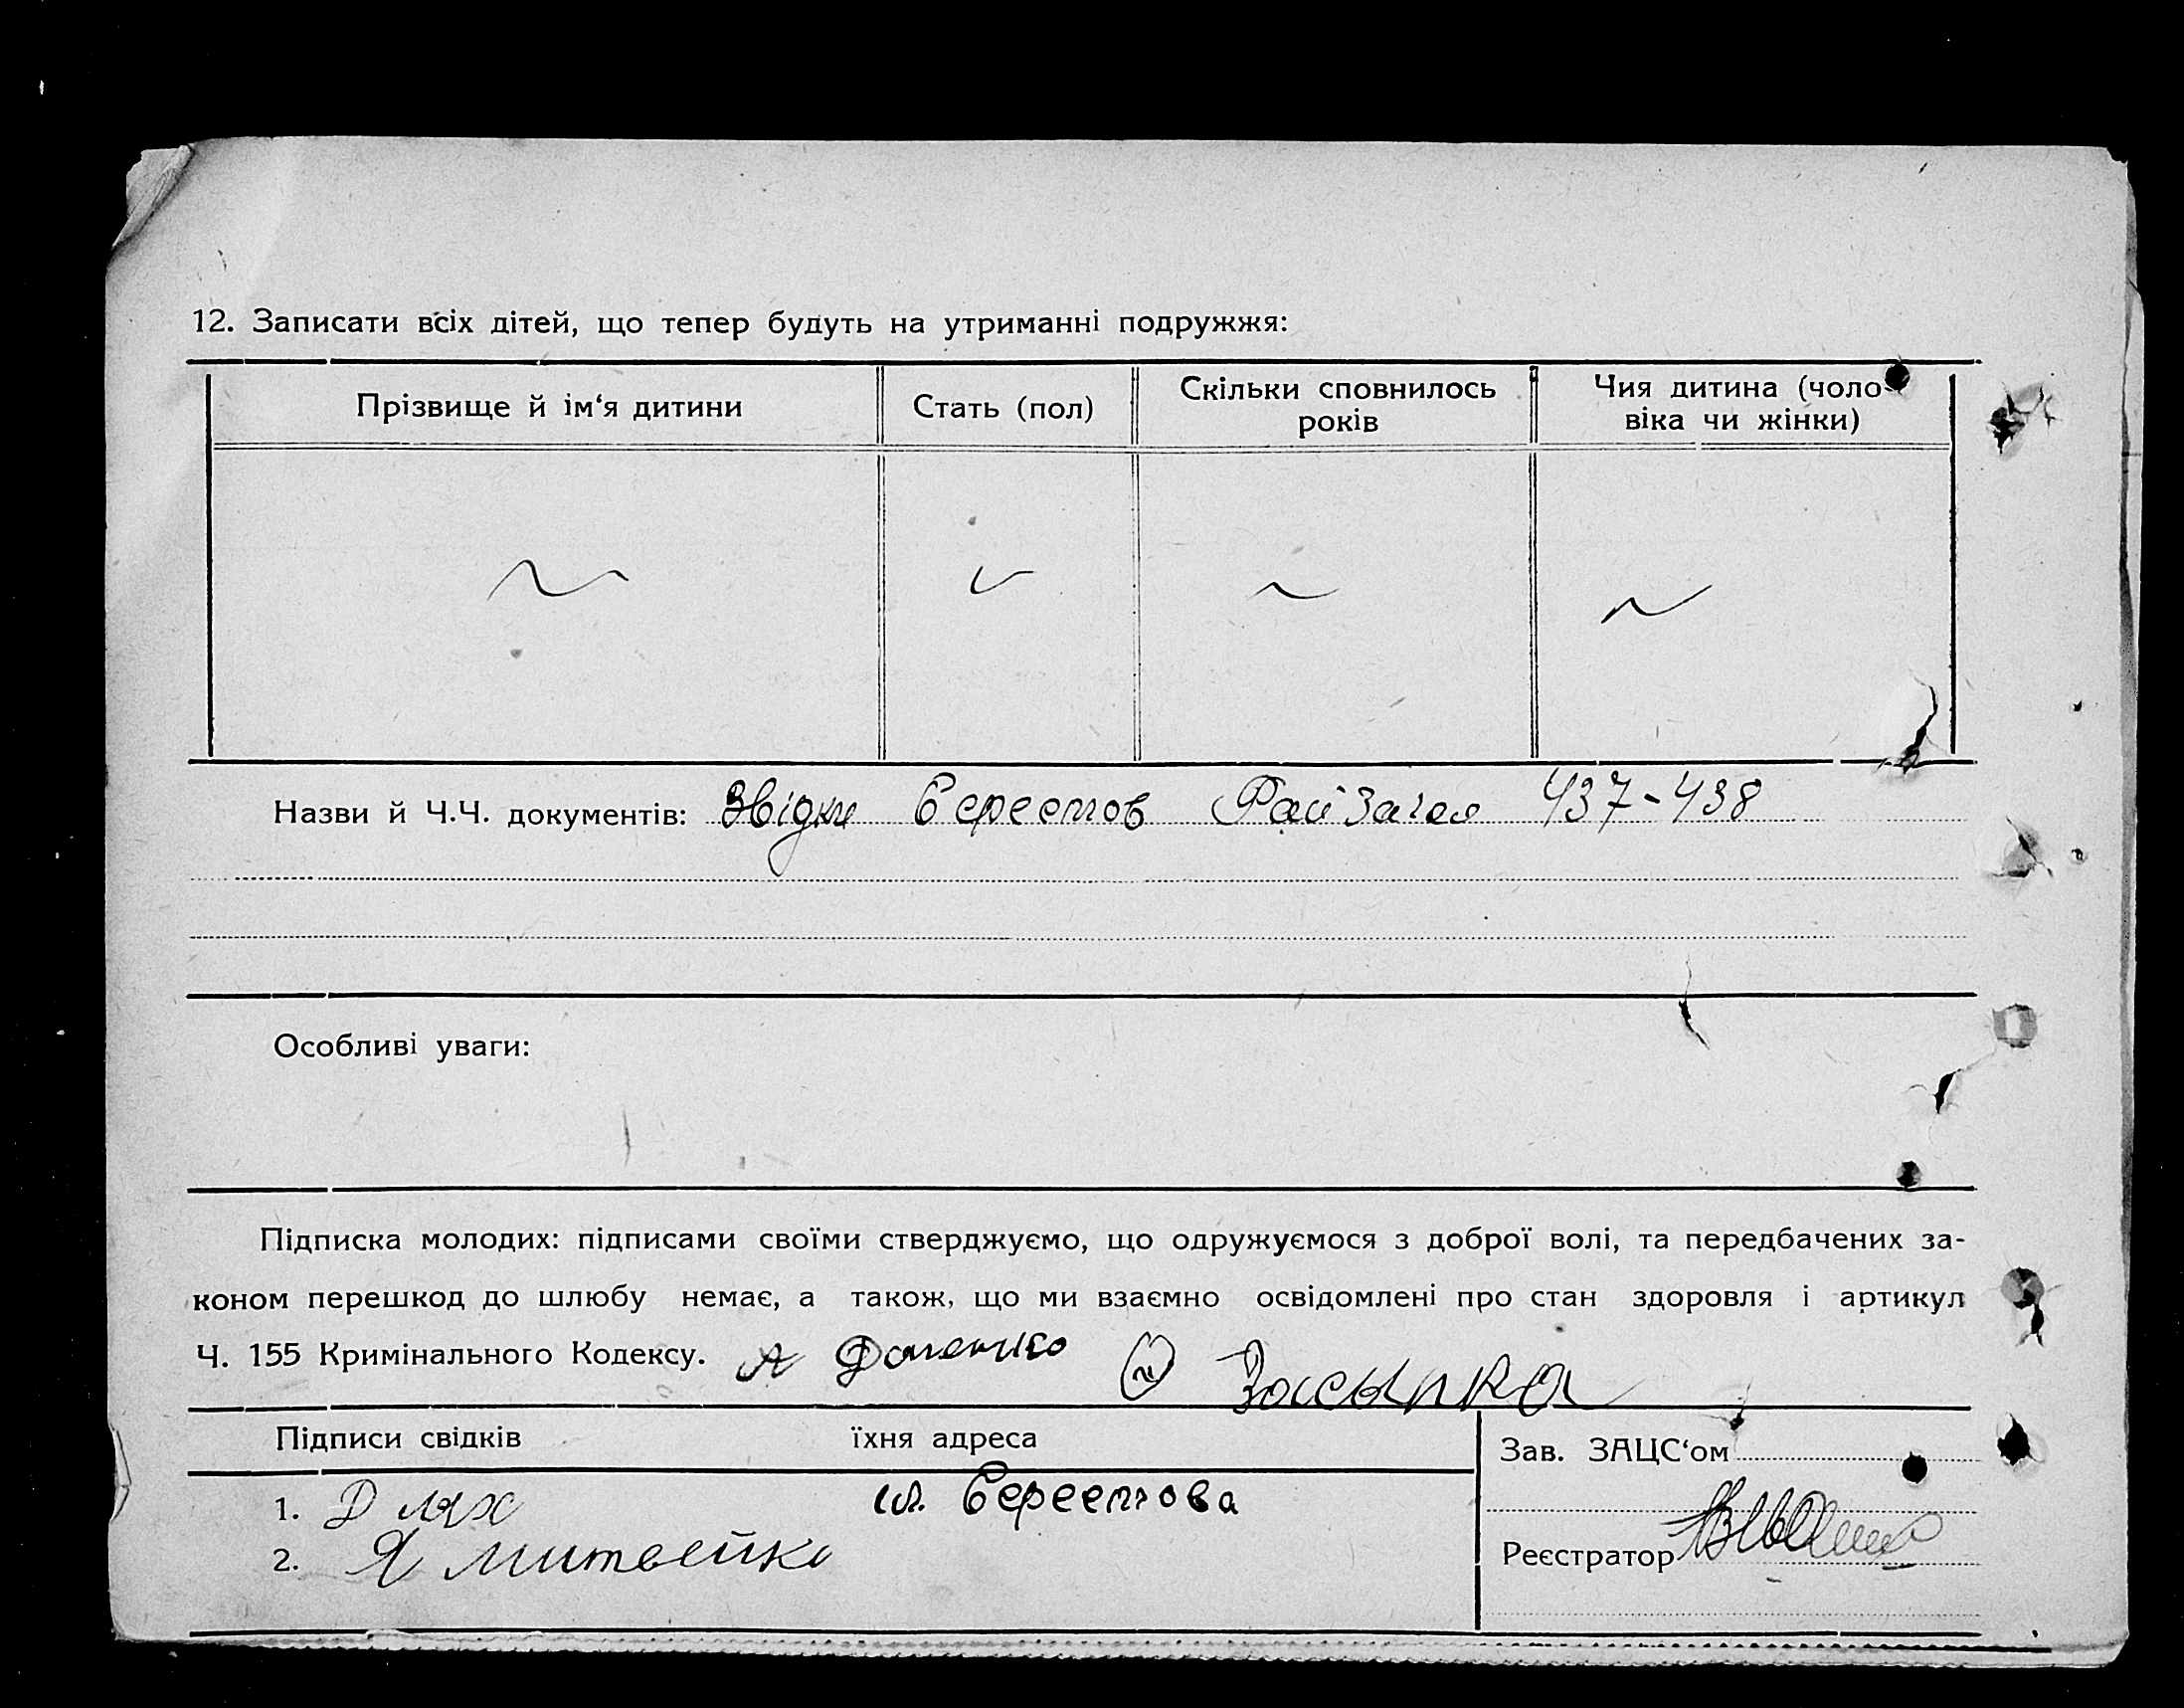 12. Записати всіх дітей, що тепер будуть на утриманні подружжя:
Прізвище й ім‘я дитини
Стать (пол)
Скільки сповнилось
років
Чия дитина (чоло-
віка чи жінки)
Назви й Ч.Ч. документів: Звідки Берестов 437-438
Особливі уваги:
Підписка молодих: підписами своїми стверджуємо, що одружуємося з доброї волі, та передбачених за-
коном перешкод до шлюбу немає, а також, що ми взаємно освідомлені про стан здоровля і артикул
Ч. 155 Кримінального Кодексу. Засыпка
Підписи свідків
їхня адреса
Зав. ЗАЦС‘ом
1. Д Лях сл. Берестова
2. Я Митвейко
Реєстратор